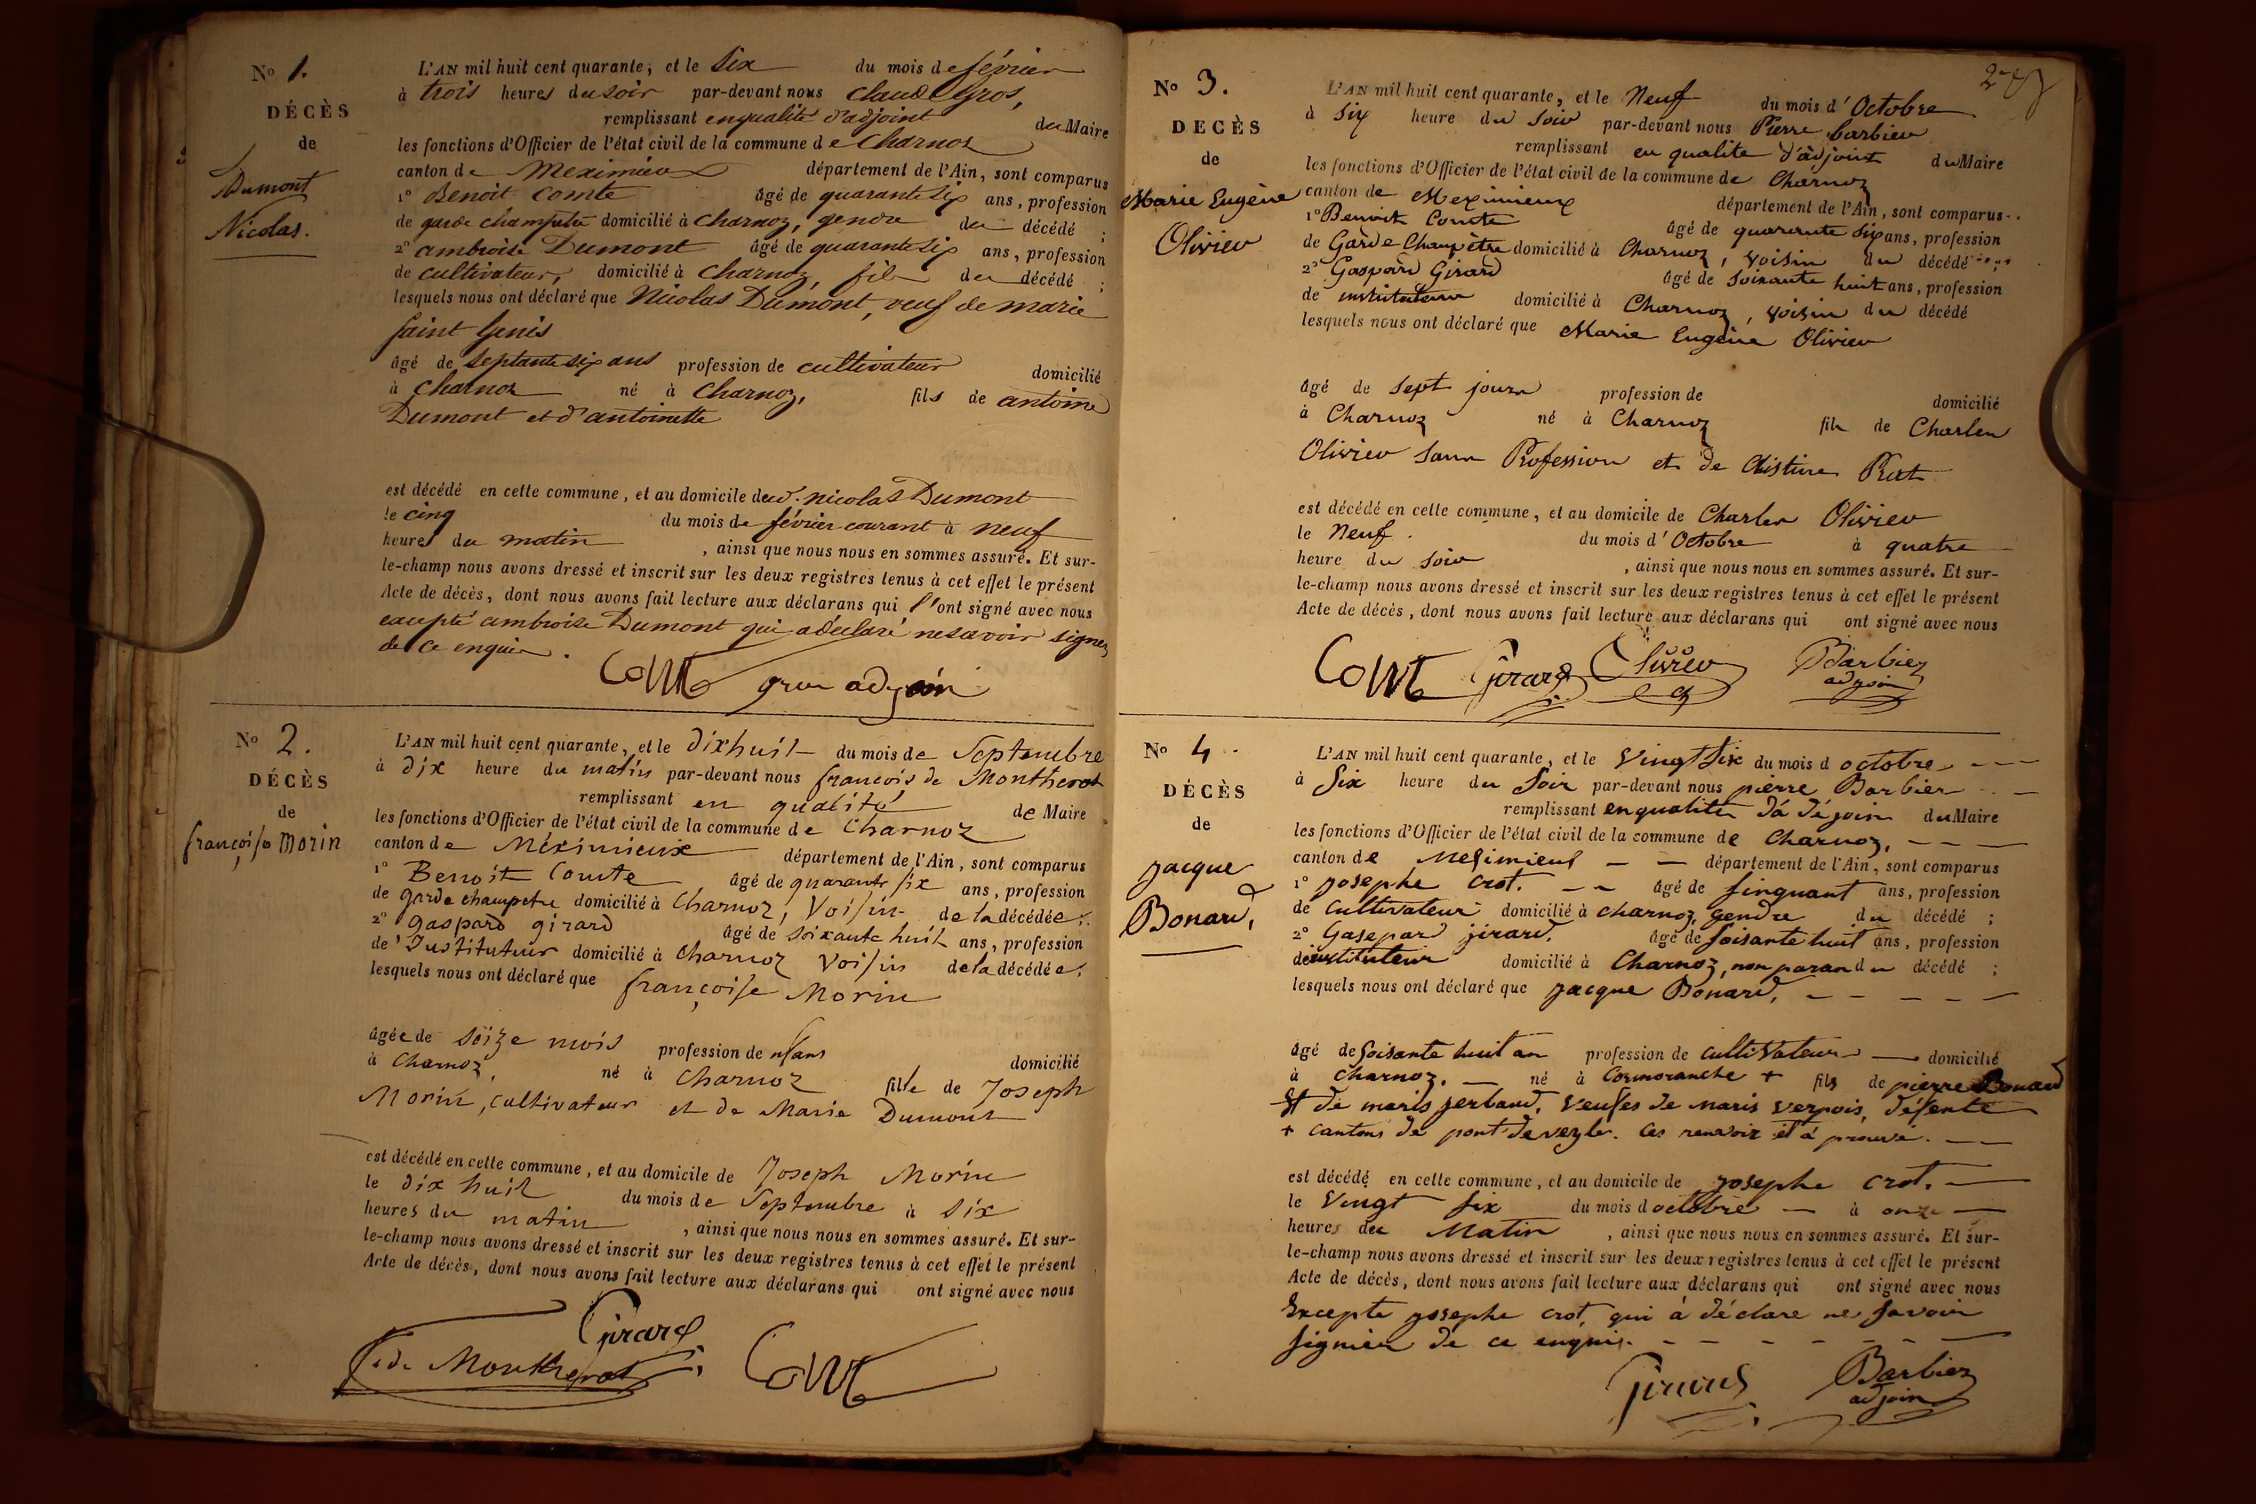 N° 1.
DÉCÈS
de
Dumont
Nicolas.
L'AN mil huit cent quarante, et le Six du mois de février
à trois heures du soir par-devant nous Claude Gros,
remplissant en qualité d'adjoint du Maire
les fonctions d'Officier de l'état civil de la commune de Charnoz
canton de Meximieux département de l'Ain, sont comparus
1° Benoit Comte âgé de quarante six ans, profession
de garde champetre domicilié à Charnoz, gendre du décédé ;
2° ambroise Dumont âgé de quarante six ans, profession
de cultivateur, domicilié à Charnoz, fils du décédé ;
lesquels nous ont déclaré que Nicolas Dumont, veuf de marie
saint Genis
âgé de septante six ans profession de cultivateur domicilié
à Charnoz né à Charnoz, fils de antoine
Dumont et d'antoinette
est décédé en cette commune, et au domicile du d. nicolas Dumont
le cinq du mois de février courant à neuf
heures du matin , ainsi que nous nous en sommes assuré. Et sur-
le-champ nous avons dressé et inscrit sur les deux registres tenus à cet effet le présent
Acte de décès, dont nous avons fait lecture aux déclarans qui l'ont signé avec nous
excepté ambroise Dumont qui a déclaré ne savoir signer
de ce enquis.
Comte gros adjoin
N° 2.
DÉCÈS
de
françoise Morin
L'AN mil huit cent quarante, et le dix huit du mois de Septembre
à dix heure du matin par-devant nous françois de Montherot
remplissant en qualité de Maire
les fonctions d'Officier de l'état civil de la commune de Charnoz
canton de Méximieux département de l'Ain, sont comparus
1° Benoit Comte âgé de quarante six ans, profession
de garde champetre domicilié à Charnoz, Voisin de la décédée ;
2° gaspard girard âgé de soixante huit ans, profession
de Instituteur domicilié à Charnoz Voisin de la décédée ;
lesquels nous ont déclaré que françoise Morin
âgée de seize mois profession de nfans domicilié
à Charnoz, né à Charnoz fille de Joseph
Morin, cultivateur et de Marie Dumont
est décédé en cette commune, et au domicile de Joseph Morin
le dix huit du mois de Septembre à six
heures du matin , ainsi que nous nous en sommes assuré. Et sur-
le-champ nous avons dressé et inscrit sur les deux registres tenus à cet effet le présent
Acte de décès, dont nous avons fait lecture aux déclarans qui ont signé avec nous
Girard
de Montherot Comte
N° 3.
DECÈS
de
Marie Eugène
Olivier
L'AN mil huit cent quarante, et le Neuf du mois d'Octobre
à Six heure du Soir par-devant nous Pierre barbier
remplissant en qualite d'adjoint du Maire
les fonctions d'Officier de l'état civil de la commune de Charnoz
canton de Meximieux département de l'Ain, sont comparus
1° Benoit Comte âgé de quarante six ans, profession
de Garde Champêtre domicilié à Charnoz, voisin du décédé ;
2° Gaspard Girard âgé de soixante huit ans, profession
de instituteur domicilié à Charnoz, voisin du décédé
lesquels nous ont déclaré que Marie Eugène Olivier
âgé de sept jours profession de domicilié
à Charnoz né à Charnoz fils de Charles
Olivier sans Profession et de Christine Prat
est décédé en cette commune, et au domicile de Charles Olivier
le Neuf du mois d'Octobre à quatre
heure du soir , ainsi que nous nous en sommes assuré. Et sur-
le-champ nous avons dressé et inscrit sur les deux registres tenus à cet effet le présent
Acte de décès, dont nous avons fait lecture aux déclarans qui ont signé avec nous
Comte Girard Olivier Barbier
adjoin
N° 4
DÉCÈS
de
jacque
Bonard,
L'AN mil huit cent quarante, et le Vingt Six du mois d octobre
à Six heure du Soir par-devant nous pierre Barbier
remplissant en qualiter dá déjoin du Maire
les fonctions d'Officier de l'état civil de la commune de Charnoz,
canton de Meximieux département de l'Ain, sont comparus
1° josephe crot. âgé de sinquant ans, profession
de Cultivateur domicilié à charnoz, gendre du décédé ;
2° Gasepard jirard, âgé de soisante huit ans, profession
de instituteur domicilié à Charnoz, non paran du décédé ;
lesquels nous ont déclaré que jacque Bonard,
âgé de soisante huit an profession de cultivateur domicilié
à Charnoz. né à Cormoranche + fils de pierre Bonard
Et de maris jerland, veufes de maris verpois, défente
+ cantons de pont de veyle. Ces renvoir et á prouvé.
est décédé en cette commune, et au domicile de josephe crot.
le Vingt six du mois d octobre à onze
heures du Matin , ainsi que nous nous en sommes assuré. Et sur-
le-champ nous avons dressé et inscrit sur les deux registres tenus à cet effet le présent
Acte de décès, dont nous avons fait lecture aux déclarans qui ont signé avec nous
Excepte josephe crot, qui á déclare ne savoir
signier de ce enquis.
Girard Barbier
adjoin